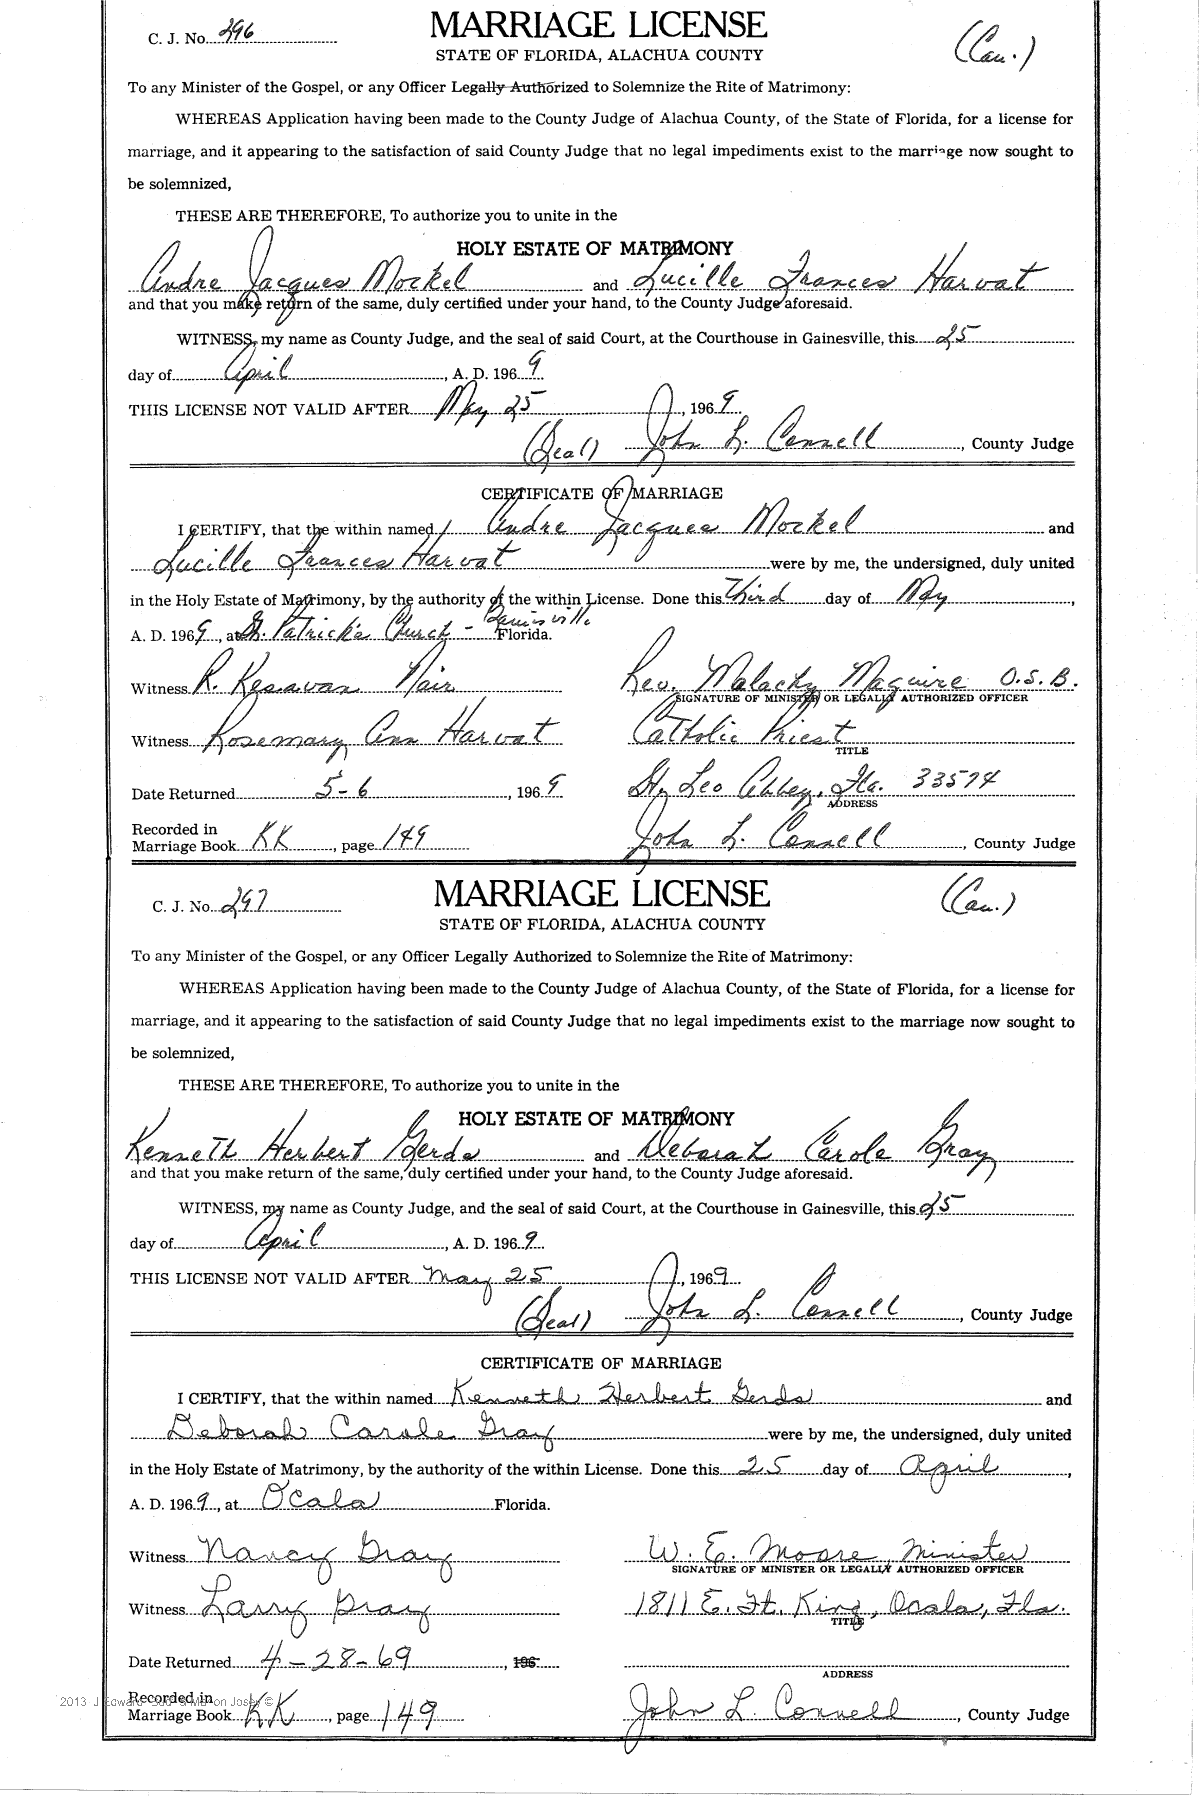 C. J. No. 296
MARRIAGE LICENSE
(Cau.)
STATE OF FLORIDA, ALACHUA COUNTY
To any Minister of the Gospel, or any Officer Legally Authorized to Solemnize the Rite of Matrimony:
WHEREAS Application having been made to the County Judge of Alachua County, of the State of Florida, for a license for
marriage, and it appearing to the satisfaction of said County Judge that no legal impediments exist to the marriage now sought to
be solemnized,
THESE ARE THEREFORE, To authorize you to unite in the
HOLY ESTATE OF MATRIMONY
Andre Jacques Mockel and Lucille Frances Harvat
and that you make return of the same, duly certified under your hand, to the County Judge aforesaid.
WITNESS, my name as County Judge, and the seal of said Court, at the Courthouse in Gainesville, this 25
day of April, A. D. 1969
THIS LICENSE NOT VALID AFTER May 25, 1969
(Seal) John L. Connell, County Judge
CERTIFICATE OF MARRIAGE
I CERTIFY, that the within named Andre Jacques Mockel and
Lucille Frances Harvat were by me, the undersigned, duly united
in the Holy Estate of Matrimony, by the authority of the within License. Done this Third day of May,
A. D. 1969, at St. Patrick's Church - Gainesville Florida.
Witness R. Kesavan Nair
Rev. Malachy Maguire O.S.B.
SIGNATURE OF MINISTER OR LEGALLY AUTHORIZED OFFICER
Witness Rosemary Ann Harvat
Catholic Priest
TITLE
Date Returned 5-6, 1969
St. Leo Abbey, Fla. 33574
ADDRESS
Recorded in
Marriage Book KK, page 149
John L. Connell, County Judge
C. J. No. 297
MARRIAGE LICENSE
(Cau.)
STATE OF FLORIDA, ALACHUA COUNTY
To any Minister of the Gospel, or any Officer Legally Authorized to Solemnize the Rite of Matrimony:
WHEREAS Application having been made to the County Judge of Alachua County, of the State of Florida, for a license for
marriage, and it appearing to the satisfaction of said County Judge that no legal impediments exist to the marriage now sought to
be solemnized,
THESE ARE THEREFORE, To authorize you to unite in the
HOLY ESTATE OF MATRIMONY
Kenneth Herbert Gerds and Deborah Carole Gray
and that you make return of the same, duly certified under your hand, to the County Judge aforesaid.
WITNESS, my name as County Judge, and the seal of said Court, at the Courthouse in Gainesville, this 25
day of April, A. D. 1969
THIS LICENSE NOT VALID AFTER May 25, 1969
(Seal) John L. Connell, County Judge
CERTIFICATE OF MARRIAGE
I CERTIFY, that the within named Kenneth Herbert Gerds and
Deborah Carole Gray were by me, the undersigned, duly united
in the Holy Estate of Matrimony, by the authority of the within License. Done this 25 day of April,
A. D. 1969, at Ocala Florida.
Witness Nancy Gray
W. E. Moore, Minister
SIGNATURE OF MINISTER OR LEGALLY AUTHORIZED OFFICER
Witness Larry Gray
1811 E. Ft. King, Ocala, Fla.
TITLE
Date Returned 4-28-69, 196
ADDRESS
Recorded in
Marriage Book KK, page 149
John L. Connell, County Judge
2013 J Edward
on Josey ©